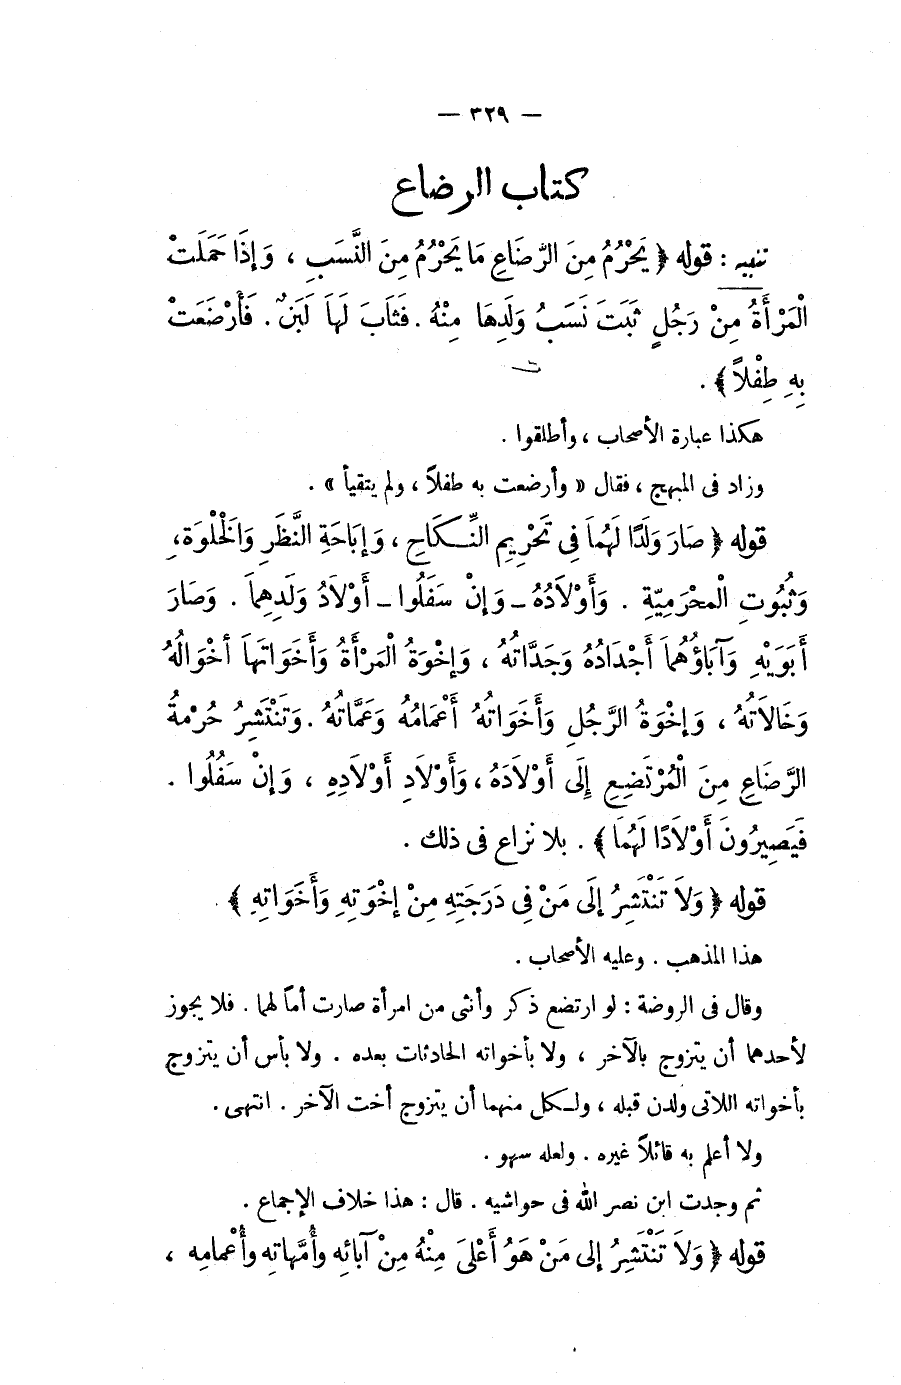 — ٣٢٩ —
كتاب الرضاع
تنبيه : قوله ﴿ يَحْرُمُ مِنَ الرَّضَاعِ مَا يَحْرُمُ مِنَ النَّسَبِ ، وَإِذَا حَمَلَتْ
الْمَرْأَةُ مِنْ رَجُلٍ ثَبَتَ نَسَبُ وَلَدِهَا مِنْهُ . فَثَابَ لَهَا لَبَنٌ . فَأَرْضَعَتْ
بِهِ طِفْلاً ﴾ .
هكذا عبارة الأصحاب ، وأطلقوا .
وزاد فى المبهج ، فقال « وأرضعت به طفلاً ، ولم يتقيأ » .
قوله ﴿ صَارَ وَلَدًا لَهُمَا فِى تَحْرِيمِ النِّكَاحِ ، وَإِبَاحَةِ النَّظَرِ وَالْخَلْوَةِ ،
وَثُبُوتِ الْمحْرَمِيّةِ . وَأَوْلاَدُهُ ـ وَإِنْ سَفَلُوا ـ أَوْلاَدُ وَلَدِهِمَا . وَصَارَ
أَبَوَيْهِ وَآبَاؤُهُمَا أَجْدَادُهُ وَجَدَّاتُهُ ، وَإِخْوَةُ الْمَرْأَةُ وَأَخَوَاتهَا أخْوَالُهُ
وَخَالاَتُهُ ، وَإِخْوَةُ الرَّجُلِ وَأَخَوَاتُهُ أَعْمَامُهُ وَعَمَّاتُهُ . وَتَنْتَشِرُ حُرْمةُ
الرَّضَاعِ مِنَ الْمُرْتَضِعِ إِلَى أَوْلاَدَهُ ، وَأَوْلاَدِ أَوْلاَدِهِ ، وَإِنْ سَفُلُوا .
فَيَصِيرُونَ أَوْلاَدًا لَهُمَا ﴾ . بلا نزاع فى ذلك .
قوله ﴿ وَلاَ تَنْتَشِرُ إِلَى مَنْ فِى دَرَجَتِهِ مِنْ إِخْوَتِهِ وَأَخَوَاتِهِ ﴾
هذا المذهب . وعليه الأصحاب .
وقال فى الروضة : لو ارتضع ذكر وأنثى من امرأة صارت أماً لهما . فلا يجوز
لأحدهما أن يتزوج بالآخر ، ولا بأخواته الحادثات بعده . ولا بأس أن يتزوج
بأخواته اللاتى ولدن قبله ، ولـكل منهما أن يتزوج أخت الآخر . انتهى .
ولا أعلم به قائلاً غيره . ولعله سهو .
ثم وجدت ابن نصر الله فى حواشيه . قال : هذا خلاف الإجماع .
قوله ﴿ وَلاَ تَنْتَشِرُ إلى مَنْ هُوَ أَعْلَى مِنْهُ مِنْ آبَائِه وأُمَّهَاتِه وأَعْمامِه ،